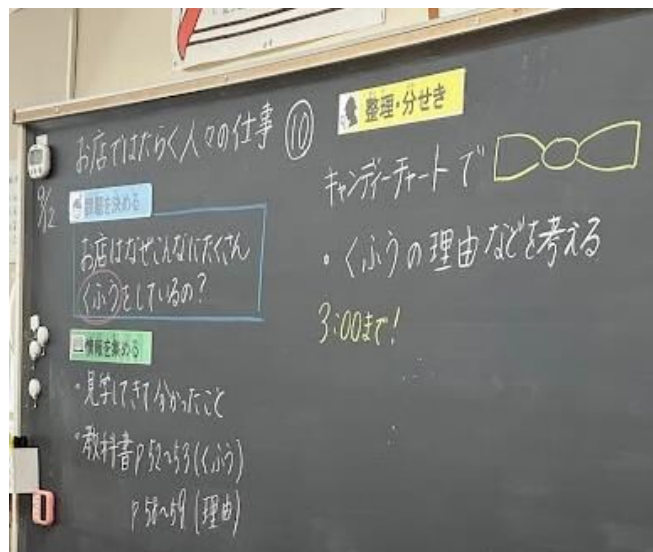 お店ではたらく人々の仕事 ⑩
9/2
課題を決める
お店はなぜこんなにたくさん
くふうをしているの?
情報を集める
・見学してきて分かったこと
・教科書p52~53(くふう)
p58~59(理由)
整理・分せき
キャンディーチャートで
・くふうの理由などを考える
3:00まで!